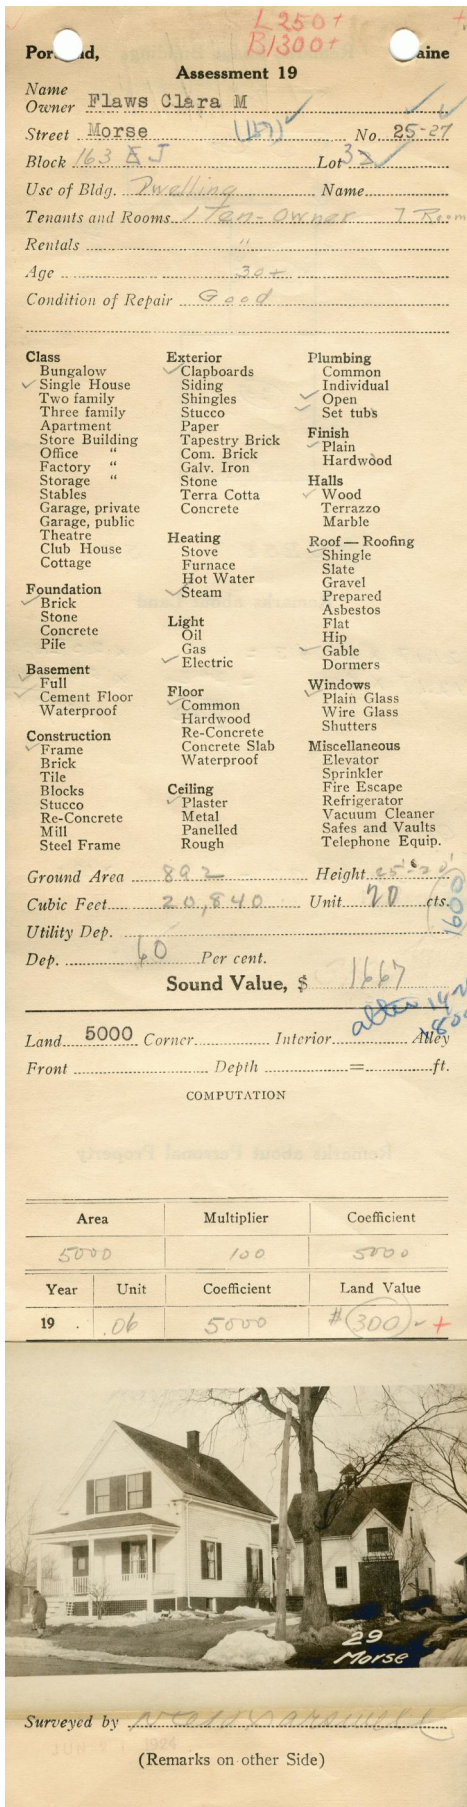 L 250+
B1300+
+
Portland, Maine
Assessment 19
Name
Owner Flaws Clara M
Street Morse (157) No. 25-27
Block 163 J Lot 32
Use of Bldg. Dwelling Name
Tenants and Rooms 1 Ten-Owner 7 Room
Rentals "
Age 30+
Condition of Repair Good
Class
Bungalow
✓ Single House
Two family
Three family
Apartment
Store Building
Office "
Factory "
Storage "
Stables
Garage, private
Garage, public
Theatre
Club House
Cottage
Foundation
✓ Brick
Stone
Concrete
Pile
Basement
✓ Full
✓ Cement Floor
Waterproof
Construction
✓ Frame
Brick
Tile
Blocks
Stucco
Re-Concrete
Mill
Steel Frame
Exterior
✓ Clapboards
Siding
Shingles
Stucco
Paper
Tapestry Brick
Com. Brick
Galv. Iron
Stone
Terra Cotta
Concrete
Heating
Stove
Furnace
Hot Water
✓ Steam
Light
Oil
Gas
✓ Electric
Floor
✓ Common
Hardwood
Re-Concrete
Concrete Slab
Waterproof
Ceiling
✓ Plaster
Metal
Panelled
Rough
Plumbing
Common
Individual
✓ Open
✓ Set tubs
Finish
✓ Plain
Hardwood
Halls
✓ Wood
Terrazzo
Marble
Roof — Roofing
✓ Shingle
Slate
Gravel
Prepared
Asbestos
Flat
Hip
✓ Gable
Dormers
Windows
✓ Plain Glass
Wire Glass
Shutters
Miscellaneous
Elevator
Sprinkler
Fire Escape
Refrigerator
Vacuum Cleaner
Safes and Vaults
Telephone Equip.
Ground Area 892 Height
Cubic Feet 20,840 Unit 20 cts.
1600
Utility Dep.
Dep. 60 Per cent.
Sound Value, $ 1667
Land 5000 Corner Interior Alley
Front Depth = ft.
COMPUTATION
Area Multiplier Coefficient
5000 100 5000
Year Unit Coefficient Land Value
19 .06 5000 #300 +
29
Morse
Surveyed by
(Remarks on other Side)